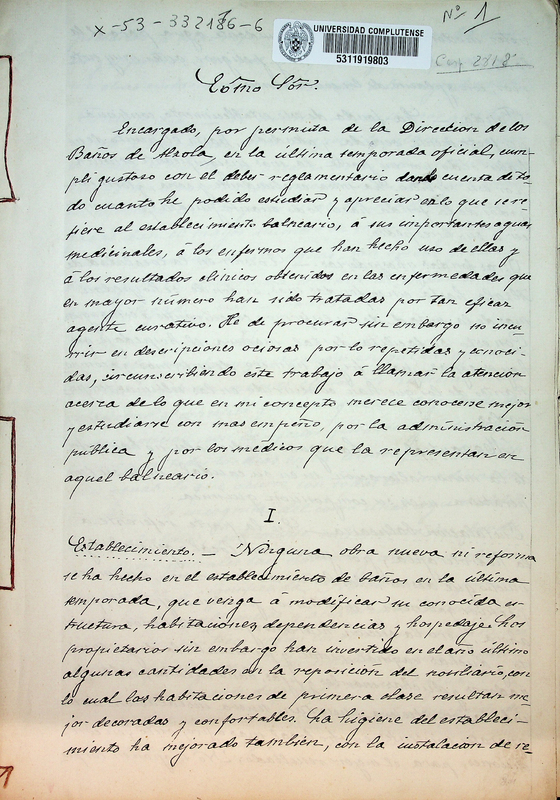 x-53-332186-6
Nº 1
UNIVERSIDAD COMPLUTENSE
5311919803
Exmo Sôr.
Encargado, por permuta de la Direccion de los
Baños de Alzola, en la última temporada oficial, cum-
pli gustoso con el deber reglamentario dando cuenta de to-
do cuanto he podido estudiar y apreciar en lo que se re-
fiere al establecimiento balneario, á sus importantes aguas
medicinales, á los enfermos que han hecho uso de ellas y
á los resultados clinicos obtenidos en las enfermedades que
en mayor número han sido tratadas por tan eficaz
agente curativo. He de procurar sin embargo no incu-
rrir en descripciones ociosas por lo repetidas y conoci-
das, circunscribiendo este trabajo á llamar la atención
acerca de lo que en mi concepto merece conocerse mejor
y estudiarse con mas empeño, por la administración
pública y por los médicos que la representan en
aquel balneario.
I
Establecimiento. — Ninguna obra nueva ni reforma
se ha hecho en el establecimiento de baños en la última
temporada, que venga á modificar su conocida es-
tructura, habitaciones, dependencias y hospedaje. Los
propietarios sin embargo han invertido en el año último
algunas cantidades en la reposición del moviliario, con
lo cual las habitaciones de primera clase resultan me-
jor decoradas y confortables. La higiene del estableci-
miento ha mejorado también, con la instalacion de re-